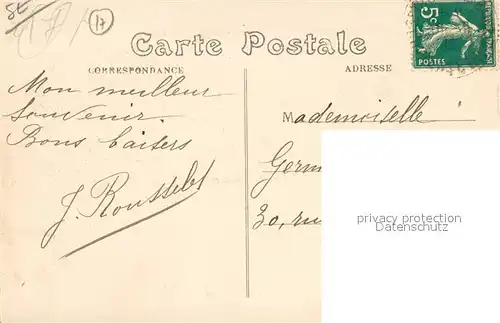 17
Carte Postale
CORRESPONDANCE
ADRESSE
5c
POSTES
Mon meilleur
souvenir.
Bons baisers
J. Rousselet
Mademoiselle
Germ
30, ru
privacy protection
Datenschutz